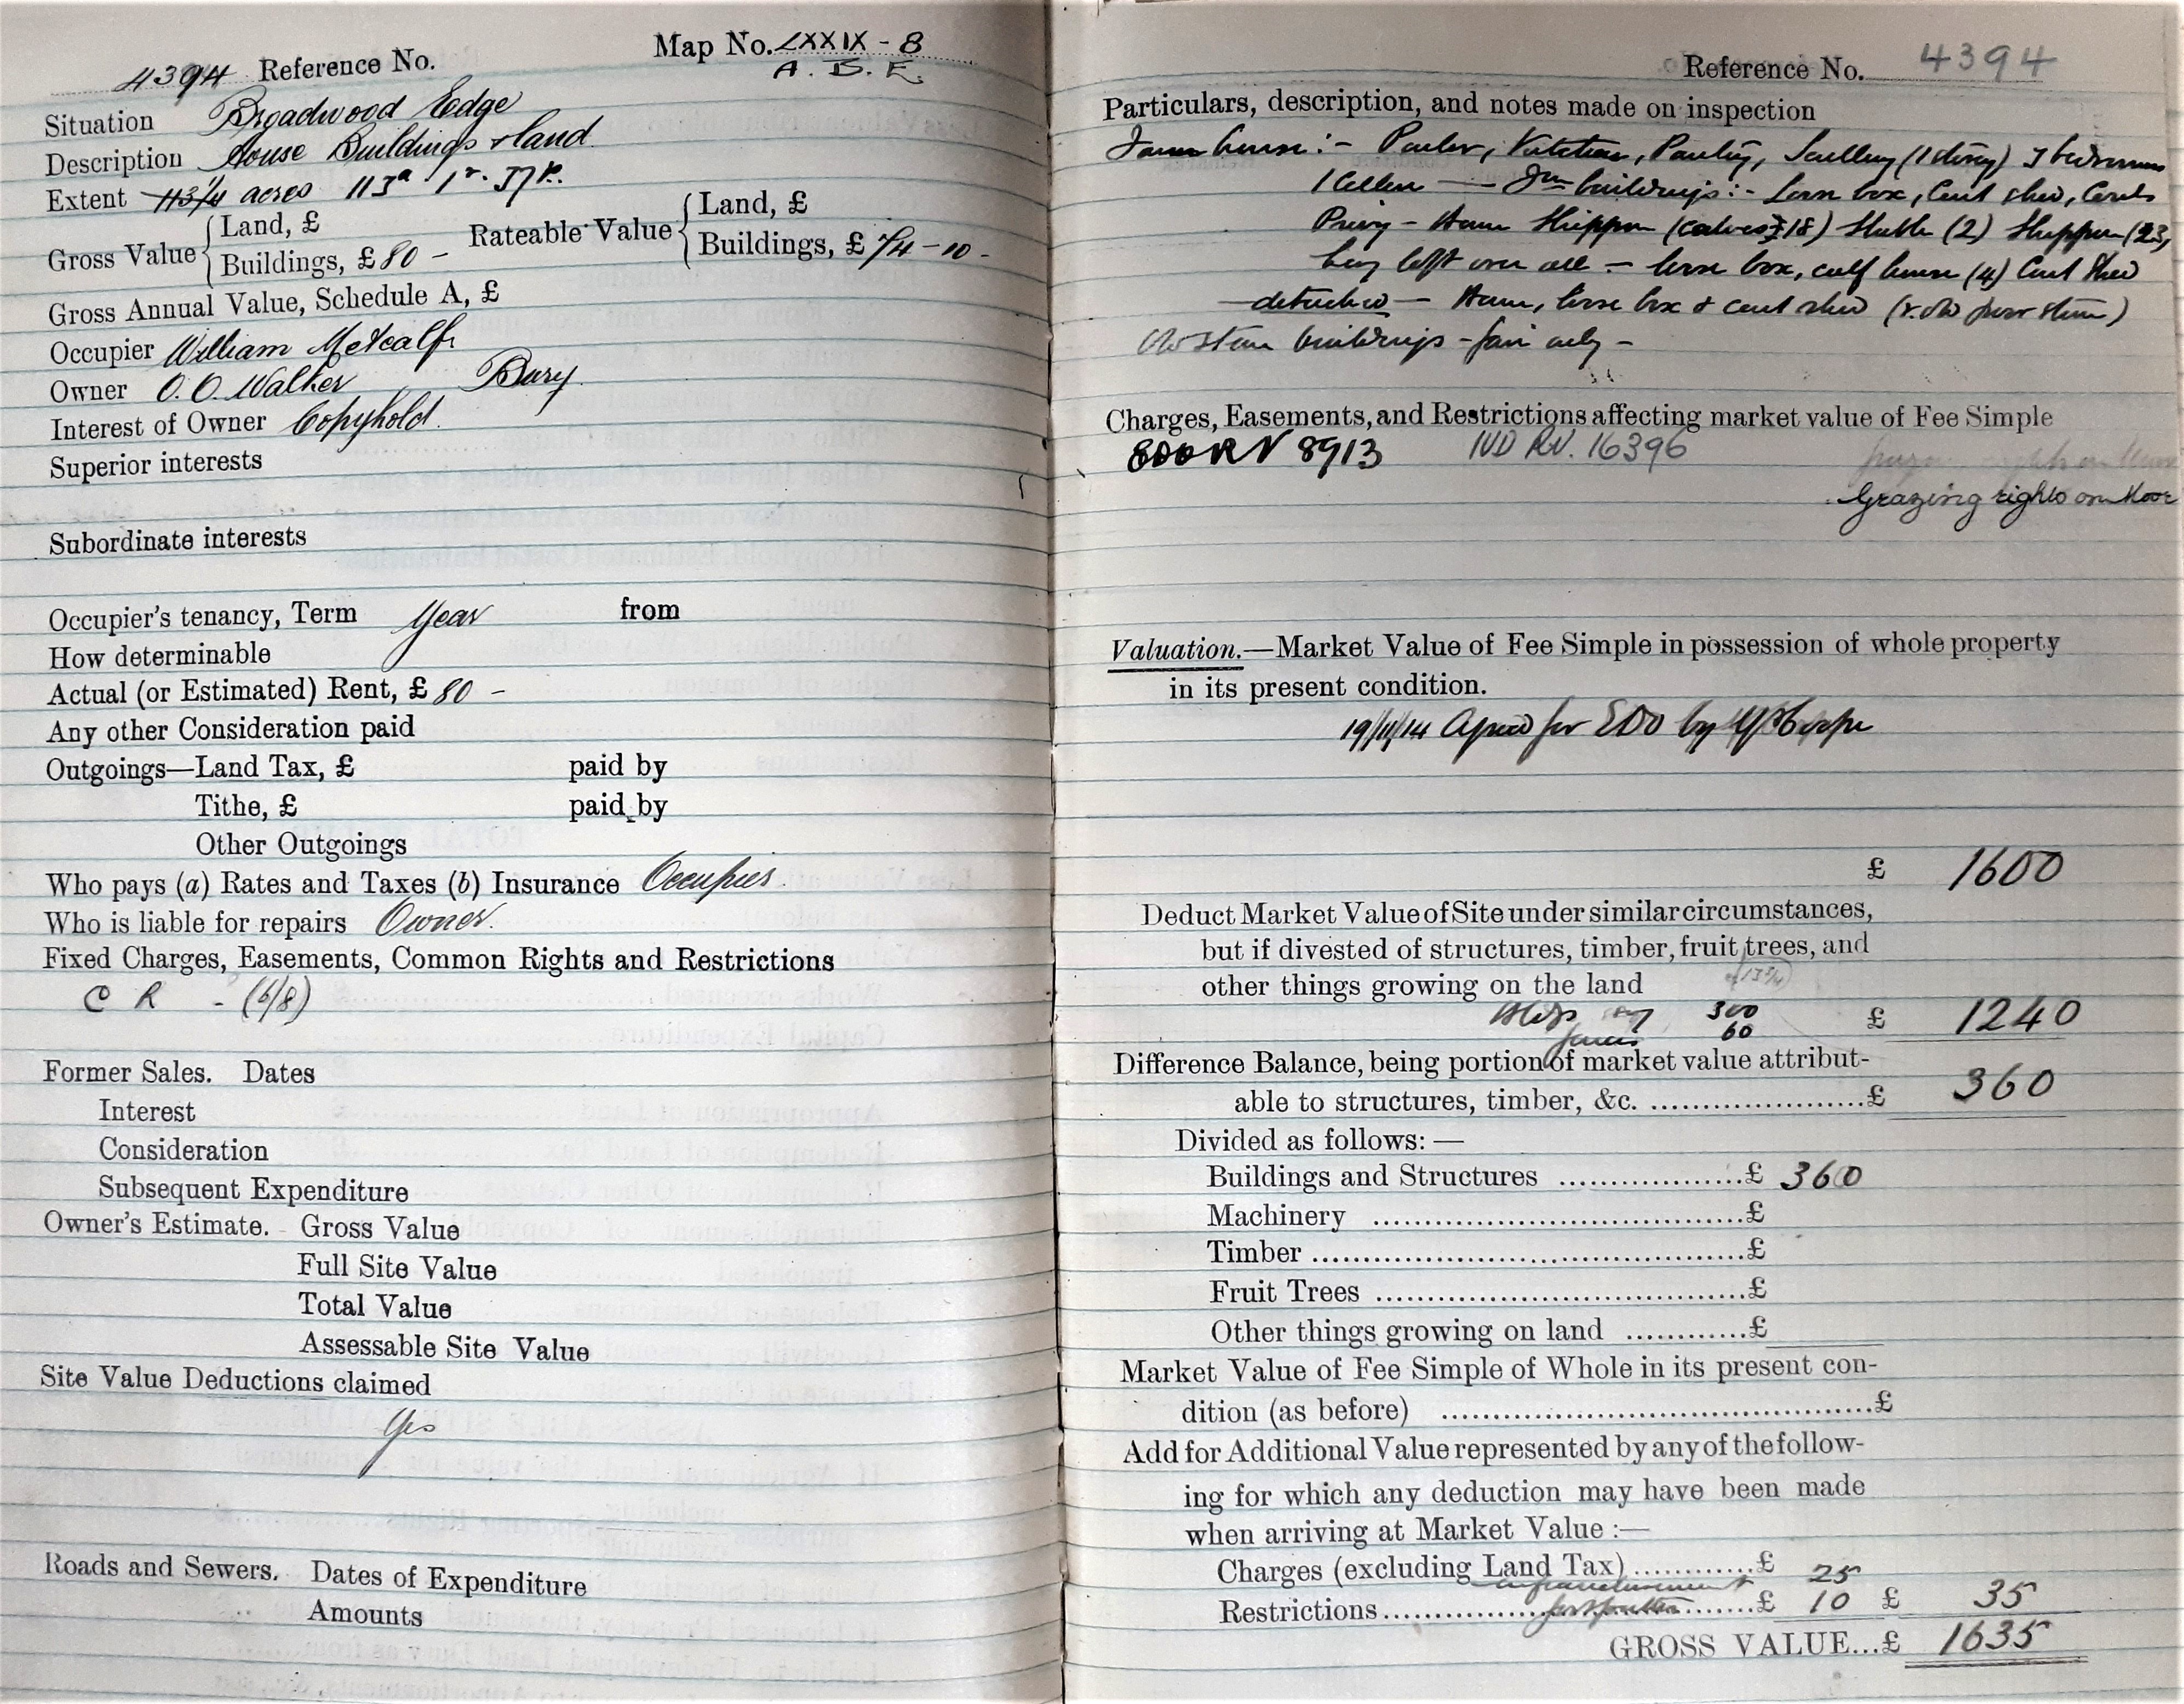 4394 Reference No. Map No. LXXIX - 8
A. B. E.
Situation Broadwood Edge
Description House Buildings & land
Extent 113 1/4 acres 113a 1r. 37p.
Gross Value { Land, £
Buildings, £ 80 -
Rateable Value { Land, £
Buildings, £ 74-10-
Gross Annual Value, Schedule A, £
Occupier William Metcalfe
Owner O. O. Walker Bury
Interest of Owner Copyhold.
Superior interests
Subordinate interests
Occupier's tenancy, Term Year from
How determinable
Actual (or Estimated) Rent, £ 80 -
Any other Consideration paid
Outgoings—Land Tax, £ paid by
Tithe, £ paid by
Other Outgoings
Who pays (a) Rates and Taxes (b) Insurance Occupier.
Who is liable for repairs Owner.
Fixed Charges, Easements, Common Rights and Restrictions
C R - (6/8)
Former Sales. Dates
Interest
Consideration
Subsequent Expenditure
Owner's Estimate. Gross Value
Full Site Value
Total Value
Assessable Site Value
Site Value Deductions claimed
Yes
Roads and Sewers. Dates of Expenditure
Amounts
Reference No. 4394
Particulars, description, and notes made on inspection
Farm house:- Parlor, Kitchen, Pantry, Scullery (1 storey) 3 bedrooms
1 Cellar — Fm buildings:- Loose box, Cart shed,
Privy - Barn Shippon (calves 18) Stable (2) Shippon (23)
hay loft over all - loose box, calf house (4) Cart Shed
detached - Barn, loose box & cart shed (v. old poor stone)
Old Stone buildings - fair only -
Charges, Easements, and Restrictions affecting market value of Fee Simple
EDO RV 8913 IVD RV. 16396
Grazing rights on Moor
Valuation.—Market Value of Fee Simple in possession of whole property
in its present condition.
19/11/14 Agreed for EDO by
£ 1600
Deduct Market Value of Site under similar circumstances,
but if divested of structures, timber, fruit trees, and
other things growing on the land
Bldgs say 300
fences 60 £ 1240
Difference Balance, being portion of market value attribut-
able to structures, timber, &c. ........................£ 360
Divided as follows: —
Buildings and Structures ....................£ 360
Machinery ........................................£
Timber ..............................................£
Fruit Trees .......................................£
Other things growing on land ............£
Market Value of Fee Simple of Whole in its present con-
dition (as before) ..............................................£
Add for Additional Value represented by any of the follow-
ing for which any deduction may have been made
when arriving at Market Value :—
Charges (excluding Land Tax) ...........£
enfranchisement 25
Restrictions .......................£ 10 £ 35
GROSS VALUE...£ 1635